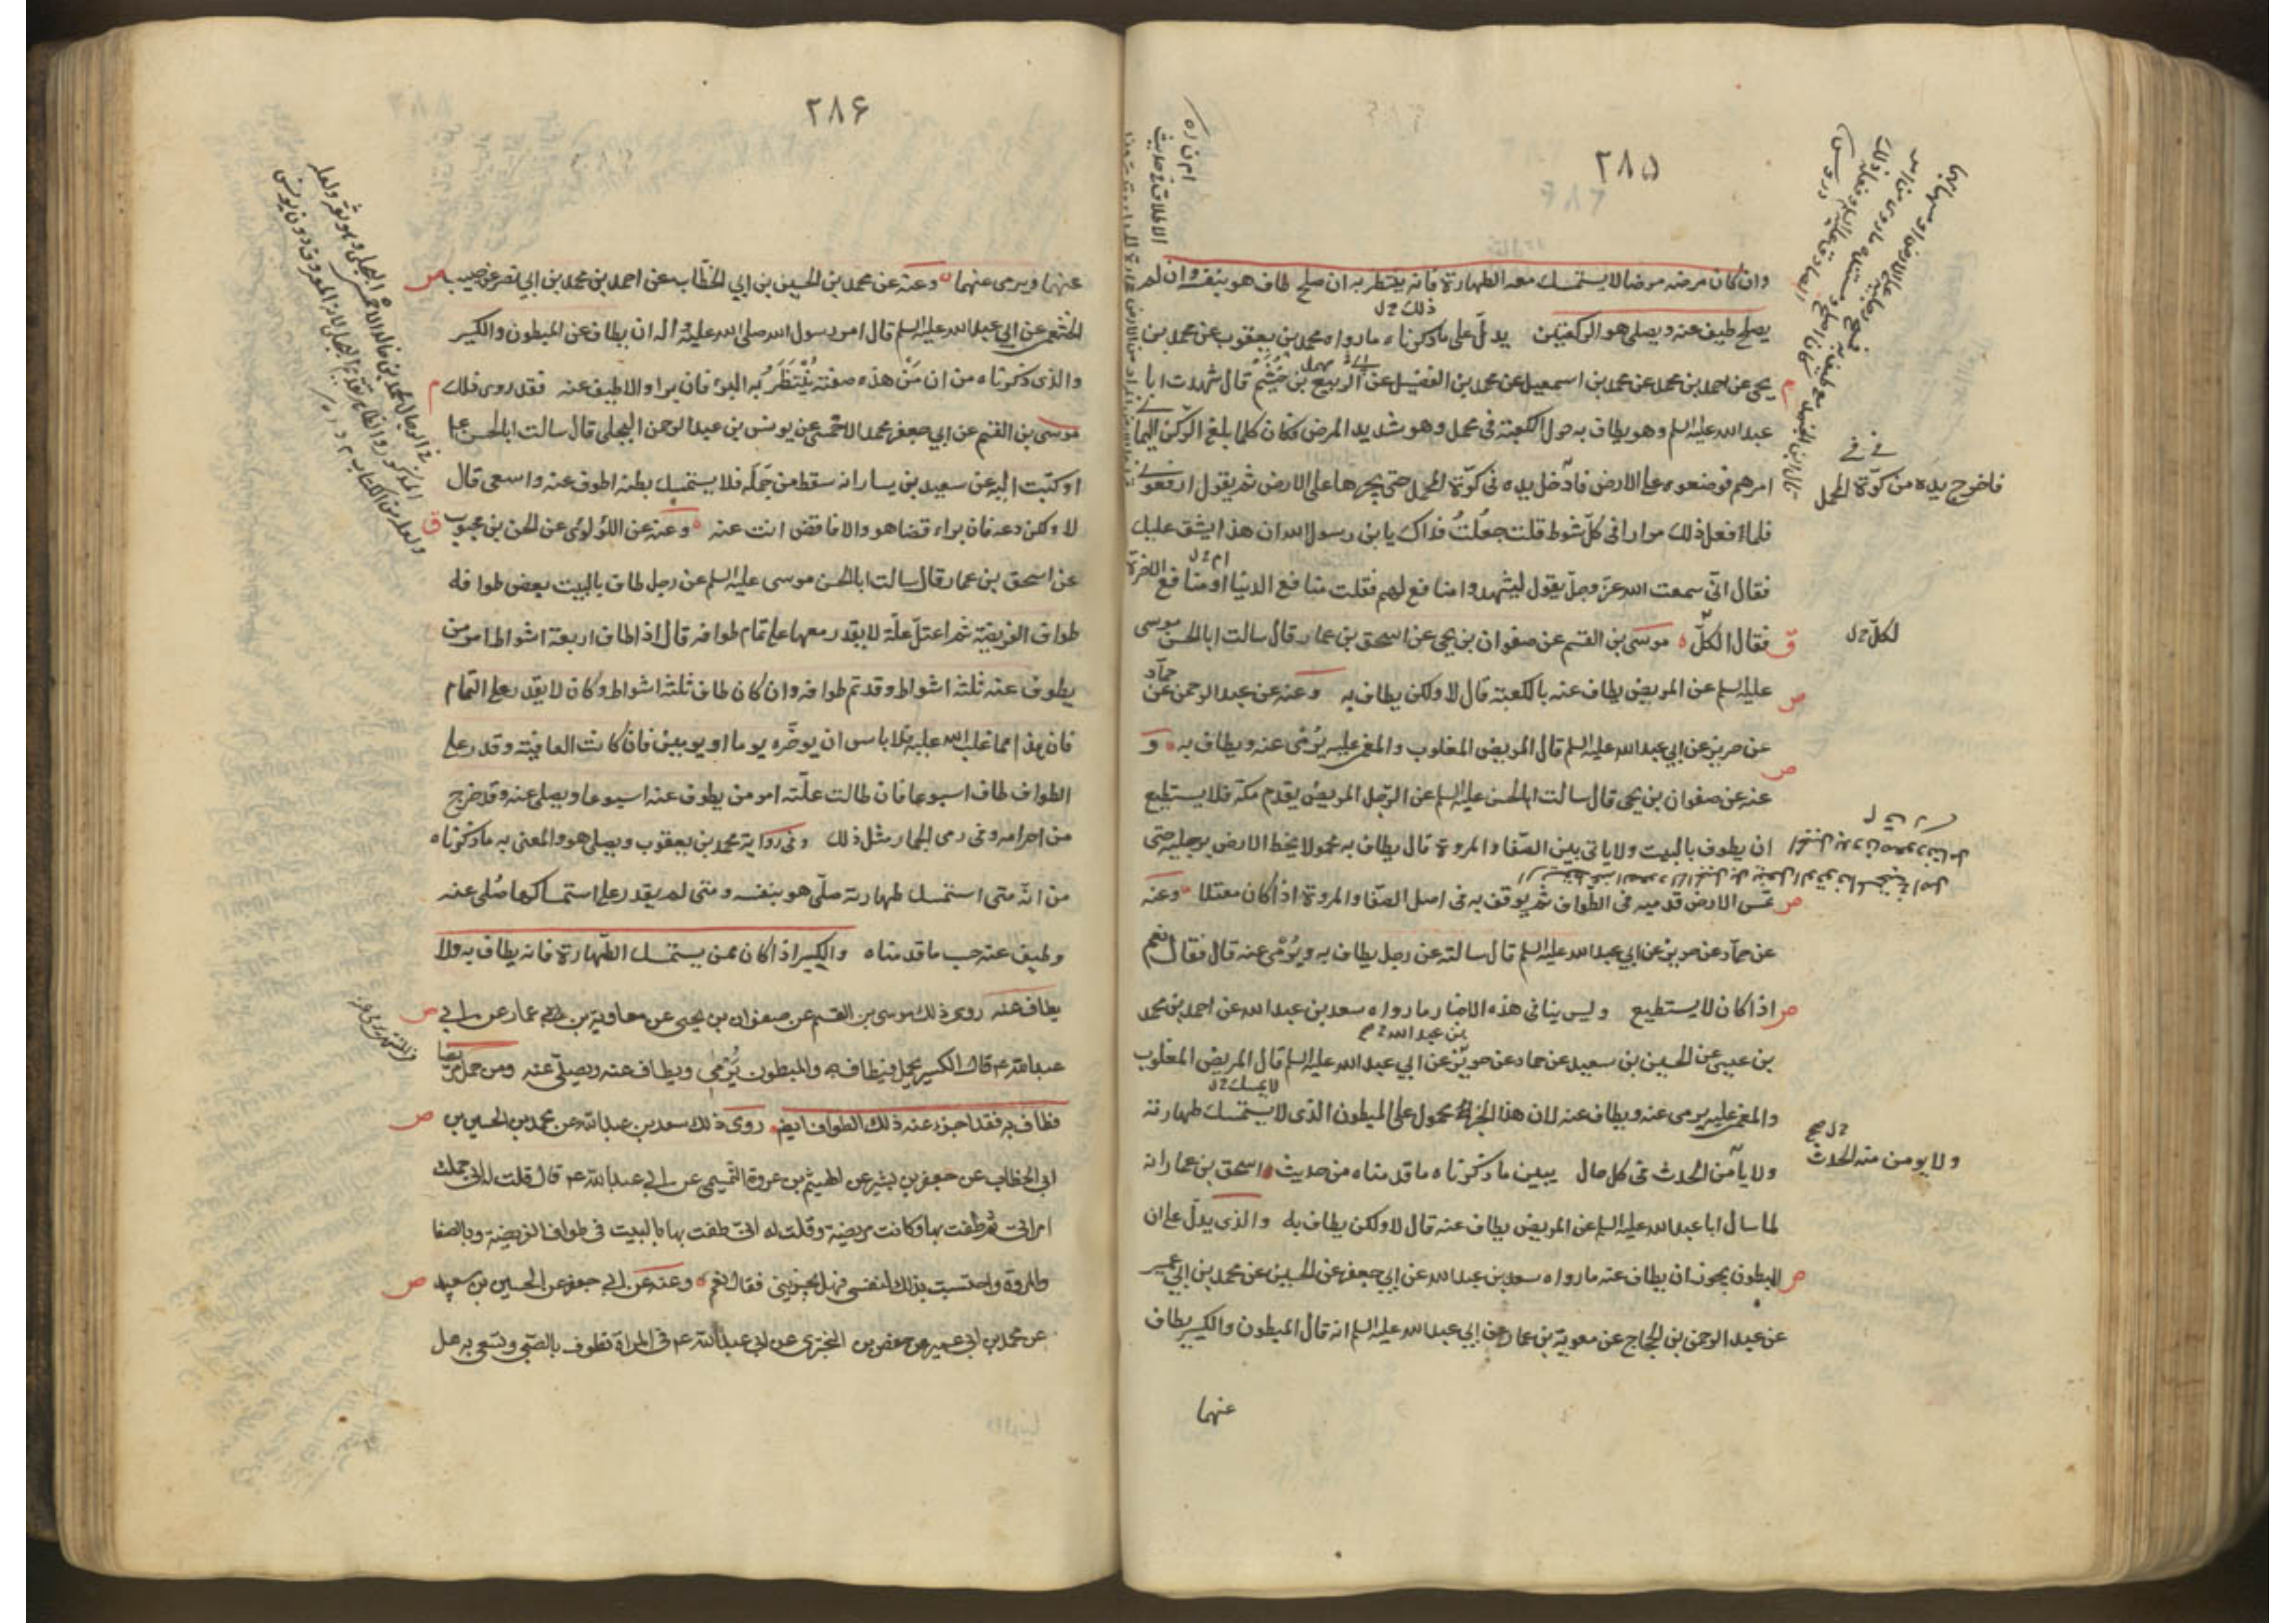 ٢٨٥
وان كان مرضه مرضا لا يستمسك معه الطهارة فانه ينتظر به ان صلح طاف هو بنفسه وان لم
يصلح طيف عنه ويصلي هو الركعتين يدل على ما ذكرناه ما رواه محمد بن يعقوب عن محمد بن
يحيى عن احمد بن محمد عن محمد بن اسمعيل عن محمد بن الفضيل عن الربيع بن خثيم قال شهدت ابا
عبد الله عليه السلم وهو يطاف به حول الكعبة في محمل وهو شديد المرض فكان كلما بلغ الركن اليماني
امرهم فوضعوه على الارض فادخل يده في كوة المحمل حتى يجرها على الارض ثم يقول ارفعوني
فلما فعل ذلك مرارا في كل شوط قلت جعلت فداك يا بن رسول الله ان هذا يشق عليك
فقال اني سمعت الله عز وجل يقول ليشهدوا منافع لهم فقلت منافع الدنيا او منافع الاخرة
فقال الكل موسى بن القسم عن صفوان بن يحيى عن اسحق بن عمار قال سالت ابا الحسن موسى
عليه السلم عن المريض يطاف عنه بالكعبة قال لا ولكن يطاف به وعنه عن عبد الرحمن عن حماد
عن حريز عن ابي عبد الله عليه السلم قال المريض المغلوب والمغمى عليه يرمى عنه ويطاف به و
عنه عن صفوان بن يحيى قال سالت ابا الحسن عليه السلم عن الرجل المريض يقدم مكة فلا يستطيع
ان يطوف بالبيت ولا ياتي بين الصفا والمروة قال يطاف به محمولا يخط الارض برجليه حتى
تمس الارض قدميه في الطواف ثم يوقف به في اصل الصفا والمروة اذا كان معتلا وعنه
عن حماد عن حريز عن ابي عبد الله عليه السلم قال سالته عن رجل يطاف به ويرمى عنه قال فقال نعم
اذا كان لا يستطيع وليس ينافي هذه الاخبار ما رواه سعد بن عبد الله عن احمد بن محمد
بن عيسى عن الحسين بن سعيد عن حماد عن حريز بن عبد الله عن ابي عبد الله عليه السلم قال المريض المغلوب
والمغمى عليه يرمى عنه ويطاف عنه لان هذا الخبر محمول على المبطون الذي لا يستمسك طهارته
ولا يامن الحدث في كل حال يبين ما ذكرناه ما قدمناه من حديث اسحق بن عمار انه
لما سال ابا عبد الله عليه السلم عن المريض يطاف عنه قال لا ولكن يطاف به والذي يدل على ان
المبطون يجوز ان يطاف عنه ما رواه سعد بن عبد الله عن ابي جعفر عن الحسين عن محمد بن ابي عمير
عن عبد الرحمن بن الحجاج عن معوية بن عمار عن ابي عبد الله عليه السلم انه قال المبطون والكسير يطاف
عنهما
فاخرج يده من كوة المحمل
لكل
ولا يومن منه الحدث
٢٨۶
عنهما ويرمى عنهما وعنه عن محمد بن الحسين بن ابي الخطاب عن احمد بن محمد بن ابي نصر عن حبيب
الخثعمي عن ابي عبد الله عليه السلم قال امر رسول الله صلى الله عليه واله ان يطاف عن المبطون والكسير
والذي ذكرناه من ان من هذه صفته ينتظر به البرء فان برا والا طيف عنه فقد روى ذلك
موسى بن القسم عن ابي جعفر محمد الاحمسي عن يونس بن عبد الرحمن البجلي قال سالت ابا الحسن ع
او كتبت اليه عن سعيد بن يسار انه سقط من جمله فلا يستمسك بطنه اطوف عنه واسعى قال
لا ولكن دعه فان براء قضا هو والا فاقض انت عنه وعنه عن اللؤلؤي عن الحسن بن محبوب
عن اسحق بن عمار قال سالت ابا الحسن موسى عليه السلم عن رجل طاف بالبيت بعض طوافه
طواف الفريضة ثم اعتل علة لا يقدر معها على تمام طوافه قال اذا طاف اربعة اشواط امر من
يطوف عنه ثلثة اشواط وقد تم طوافه وان كان طاف ثلثة اشواط وكان لا يقدر على التمام
فان هذا مما غلب الله عليه فلا باس ان يوخره يوما او يومين فان كانت العافية وقدر على
الطواف طاف اسبوعا فان طالت علته امر من يطوف عنه اسبوعا ويصلي عنه وقد خرج
من احرامه وفي رمي الجمار مثل ذلك وفي رواية محمد بن يعقوب ويصلي هو والمعنى به ما ذكرناه
من انه متى استمسك طهارته صلى هو بنفسه ومتى لم يقدر على استمساكها صلى عنه
وطيف عنه حسب ما قدمناه والكسير اذا كان ممن يستمسك الطهارة فانه يطاف به ولا
يطاف عنه روى ذلك موسى بن القسم عن صفوان بن يحيى عن معاوية بن عمار عن ابي
عبد الله ع قال الكسير يحمل فيطاف به والمبطون يرمى ويطاف عنه ويصلى عنه ومن حمل مريضا
فطاف به فقد اجزء عنه ذلك الطواف ايضا روى ذلك سعد بن عبد الله عن محمد بن الحسين بن
ابي الخطاب عن جعفر بن بشير عن الهيثم بن عروة التميمي عن ابي عبد الله ع قال قلت له اني حملت
امراتي ثم طفت بها وكانت مريضة وقلت له اني طفت بها بالبيت في طواف الفريضة وبالصفا
والمروة واحتسبت بذلك لنفسي فهل يجزيني فقال نعم وعنه عن ابي جعفر عن الحسين بن سعيد
عن محمد بن ابي عمير عن حفص بن البختري عن ابي عبد الله ع في المراة تطوف بالصبي وتسعى به هل